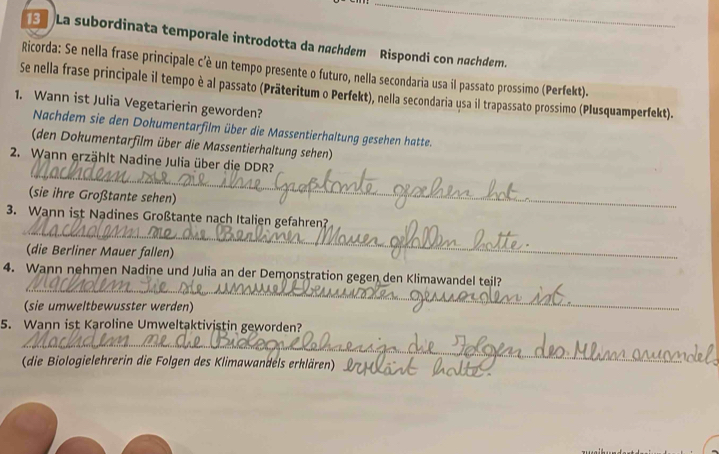 13 La subordinata temporale introdotta da nachdem Rispondi con nachdem.
Ricorda: Se nella frase principale c'è un tempo presente o futuro, nella secondaria usa il passato prossimo (Perfekt).
Se nella frase principale il tempo è al passato (Präteritum o Perfekt), nella secondaria usa il trapassato prossimo (Plusquamperfekt).
1. Wann ist Julia Vegetarierin geworden?
Nachdem sie den Dokumentarfilm über die Massentierhaltung gesehen hatte.
(den Dokumentarfilm über die Massentierhaltung sehen)
2. Wann erzählt Nadine Julia über die DDR?
Nachdem sie sie ihre Großtante gesehen hat.
(sie ihre Großtante sehen)
3. Wann ist Nadines Großtante nach Italien gefahren?
Nachdem me die Berliner Mauer gefallen hatte.
(die Berliner Mauer fallen)
4. Wann nehmen Nadine und Julia an der Demonstration gegen den Klimawandel teil?
Nachdem sie sie umweltbewusster geworden ist.
(sie umweltbewusster werden)
5. Wann ist Karoline Umweltaktivistin geworden?
Nachdem me die die Folgen des
(die Biologielehrerin die Folgen des Klimawandels erklären) erklärt hatte.